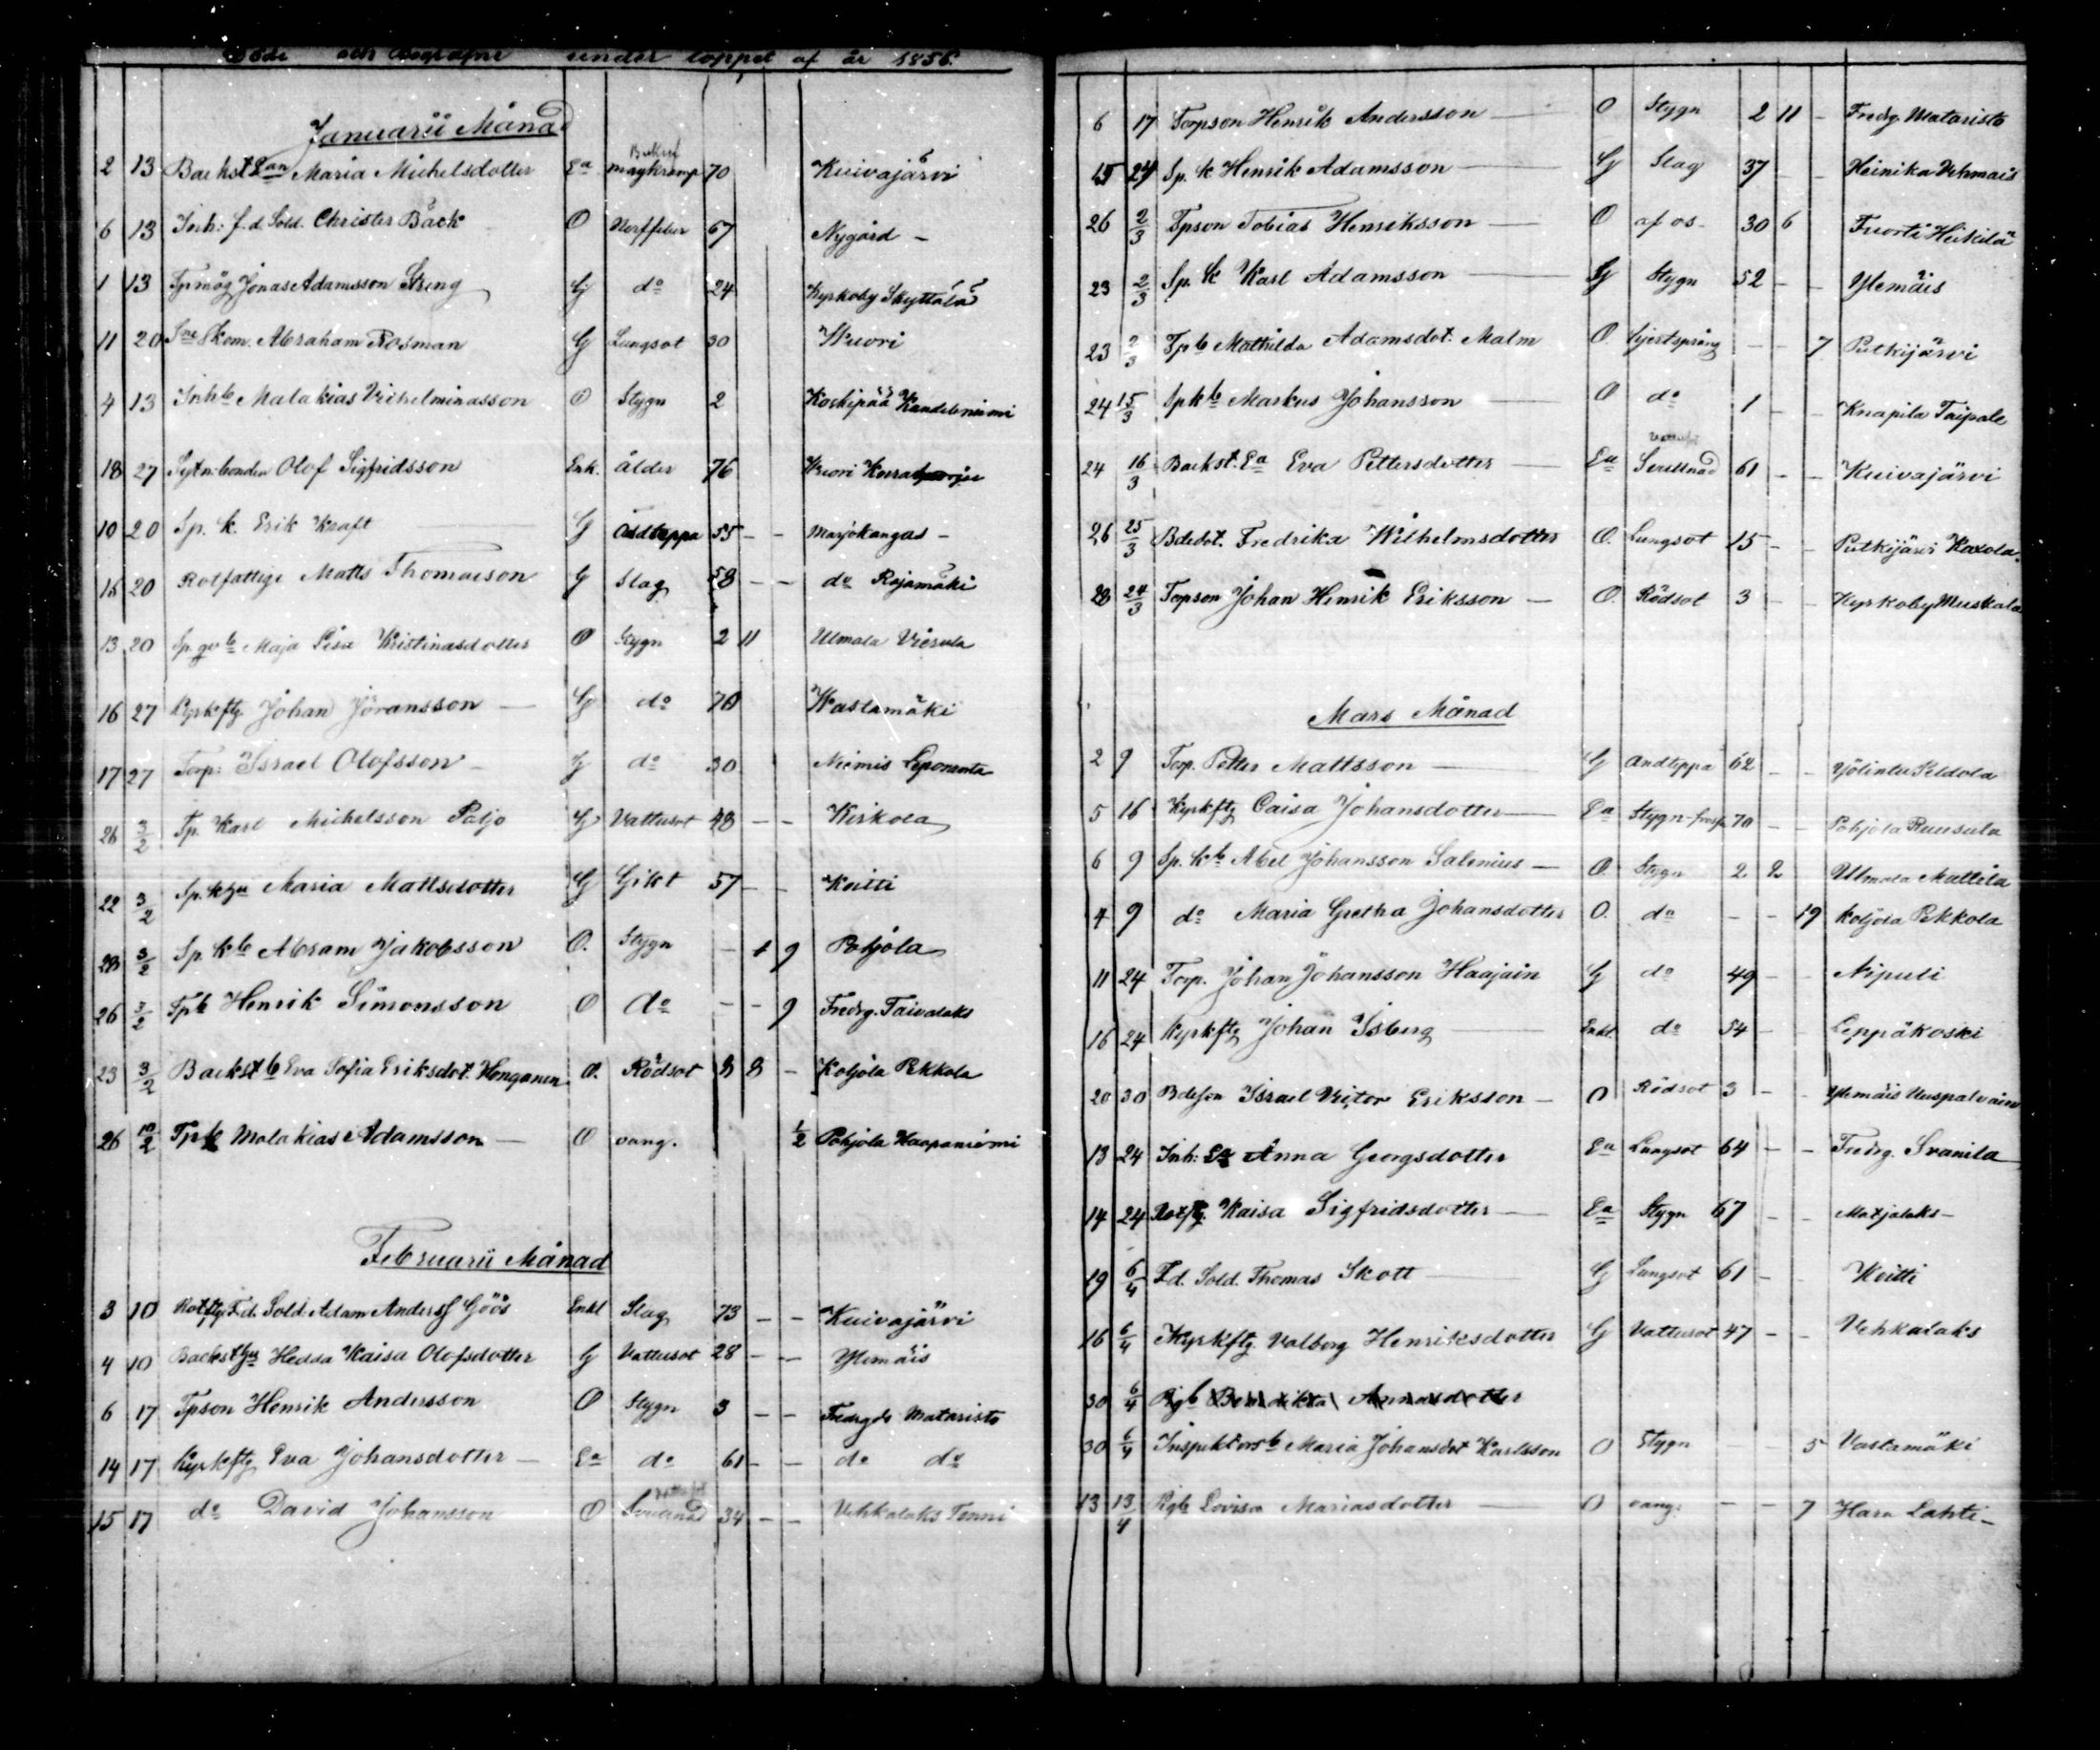 Döde och Begrafne under loppet af år 1856.
Januarii Månad
2 13 Backst Ean Maria Michelsdotter Ea magkramp 70 Kuivajärvi
6 13 Inh: f.d. Sold. Christer Bäck O Nerffeber 67 Nygård -
1 13 Tpmåg Jonas Adamsson Streng G do 24 Kyrkoby Skyttälä
11 20 Skom. Abraham Rosman G Lungsot 30 Wuori
4 13 Inh b Malakias Vilhelminasson O Stygn 2 Koskipää Kandeleniemi
18 27 Sytn: bonden Olof Sigfridsson Enk. ålder 76 Wuori
10 20 Sp. k. Erik Kraft G Andteppa 55 - - Marjokangas -
15 20 Rotfattige Matts Thomasson G Slag 58 - - do Rajamäki
13 20 Sp. gu b Maja Lisa Kristinasdotter O Stygn 2 11 Ulmala Viesula
16 27 Kyrkftg Johan Jöransson G do 70 Wastamäki
17 27 Torp: Israel Olofsson G do 30 Niemis
26 3/2 Tp. Karl Michelsson Paljo G Vattusot 48 - - Kirkola
22 3/2 Sp. k hu Maria Mattsdotter G Gikt 57 - - Koitti
28 3/2 Sp. k b Abram Jakobsson O. Stygn - 1 9 Pohjola
26 3/2 Tp b Henrik Simonsson O do - - 9 Fredrg. Taivalaks
23 3/2 Backst b Eva Sofia Eriksdot. Honganen O. Rödsot 8 8 - Koljola Pekkola
26 10/2 Tp b Malakias Adamsson O oang. 1/2 Pohjola Haapaniemi
Februarii Månad
3 10 Rotftg F.d. Sold. Adam Anderss Göös Enkl Slag 73 - - Kuivajärvi
4 10 Backst hu Hedda Kaisa Olofsdotter G Vattusot 28 - - Ylemäis
6 17 Tpson Henrik Andersson O Stygn 3 - - Fredrgds Mataristo
14 17 Kyrkftg Eva Johansdotter Ea do 61 - - do do
15 17 do David Johansson O 34 - - Vehkalaks Tenni
6 17 Torpson Henrik Andersson O Stygn 2 11 - Fredrg. Mataristo
15 24 Sp. k Henrik Adamsson G Slag 37 - - Heinika Vehmais
26 2/3 Tpson Tobias Henriksson O af os- 30 6 Heikilä
23 2/3 Sp. k Karl Adamsson G Stygn 52 - - Ylemäis
23 2/3 Tp b Mathilda Adamsdot. Malm O. hjertsprång - - 7 Putkijärvi
24 15/3 Spk b Markus Johansson O do 1 - - Knapila Taipale
24 16/3 Backst. Ea Eva Pettersdotter Ea 61 - - Kuivajärvi
26 25/3 Bdedot. Fredrika Wilhelmsdotter O. Lungsot 15 - - Putkijärvi Kaxola
28 24/3 Torpson Johan Henrik Eriksson O. Rödsot 3 - - Kyrkoby Muskala
Mars Månad
2 9 Torp. Petter Mattsson G Andteppa 62 - - Peldola
5 16 Kyrkftg Caisa Johansdotter Ea Stygn-frossa 70 - - Pohjola Ruusula
6 9 Sp. k b Abel Johansson Salenius O. Stygn 2 2 Ulmala Mattila
4 9 do Maria Gretha Johansdotter O. do - - 19 Koljola Pekkola
11 24 Torp. Johan Johansson Haajain G do 49 - - Nipuli
16 24 Kyrkftg Johan Isberg Enkl. do 54 - - Leppäkoski
20 30 Bdeson Israel Victor Eriksson O Rödsot 3 - - Ylemäis Uuspalvain
13 24 Inh: Ea Anna Georgsdotter Ea Lungsot 64 - - Fredrg. Svanila
14 24 Rotftg. Kaisa Sigfridsdotter Ea Stygn 67 - - Matjalaks -
19 6/4 F.d. Sold. Thomas Skott G Lungsot 61 - Koitti
16 6/4 Kyrkftg Valborg Henriksdotter G Vattusot 47 - - Vehkalaks
30 6/4 Pig b Bendikta Annasdotter
30 6/4 Inspektors b Maria Johansdot Karlsson O Stygn 5 Vastamäki
13 13/4 Pigb Lovisa Mariasdotter O oang: - - 7 Hara Lahti -